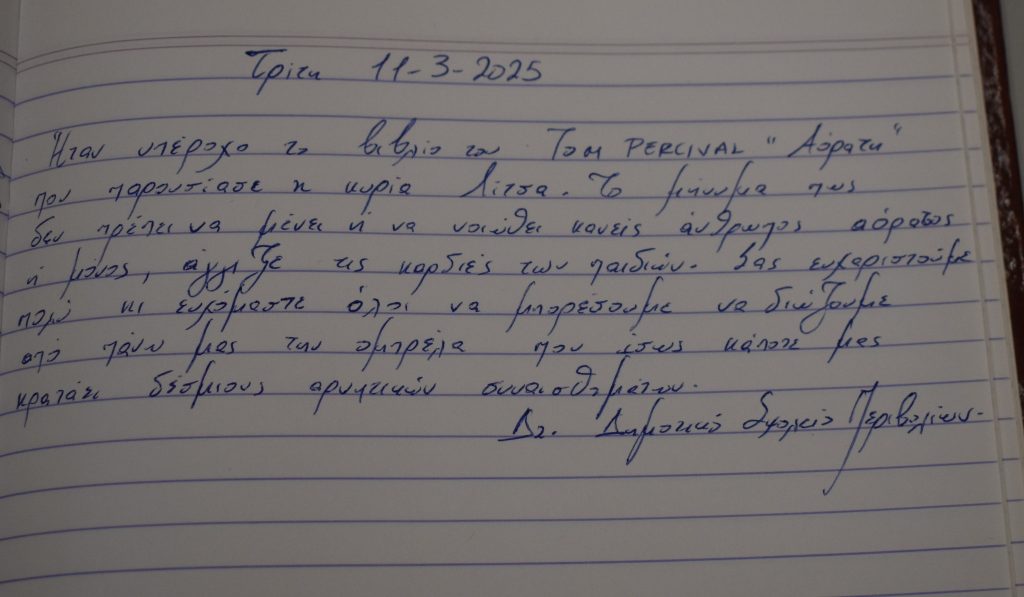 Τρίτη 11-3-2025
Ήταν υπέροχο το βιβλίο του TOM PERCIVAL "Αόρατη"
που παρουσίασε η κυρία Λίτσα. Το μήνυμα πως
δεν πρέπει να μένει ή να νοιώθει κανείς άνθρωπος αόρατος
ή μόνος, άγγιξε τις καρδιές των παιδιών. Σας ευχαριστούμε
πολύ κι ευχόμαστε όλοι να μπορέσουμε να διώξουμε
από πάνω μας την ομπρέλα που ίσως κάποτε μας
κρατάει δέσμιους αρνητικών συναισθημάτων.
Δημοτικό Σχολείο Περιβολίων.